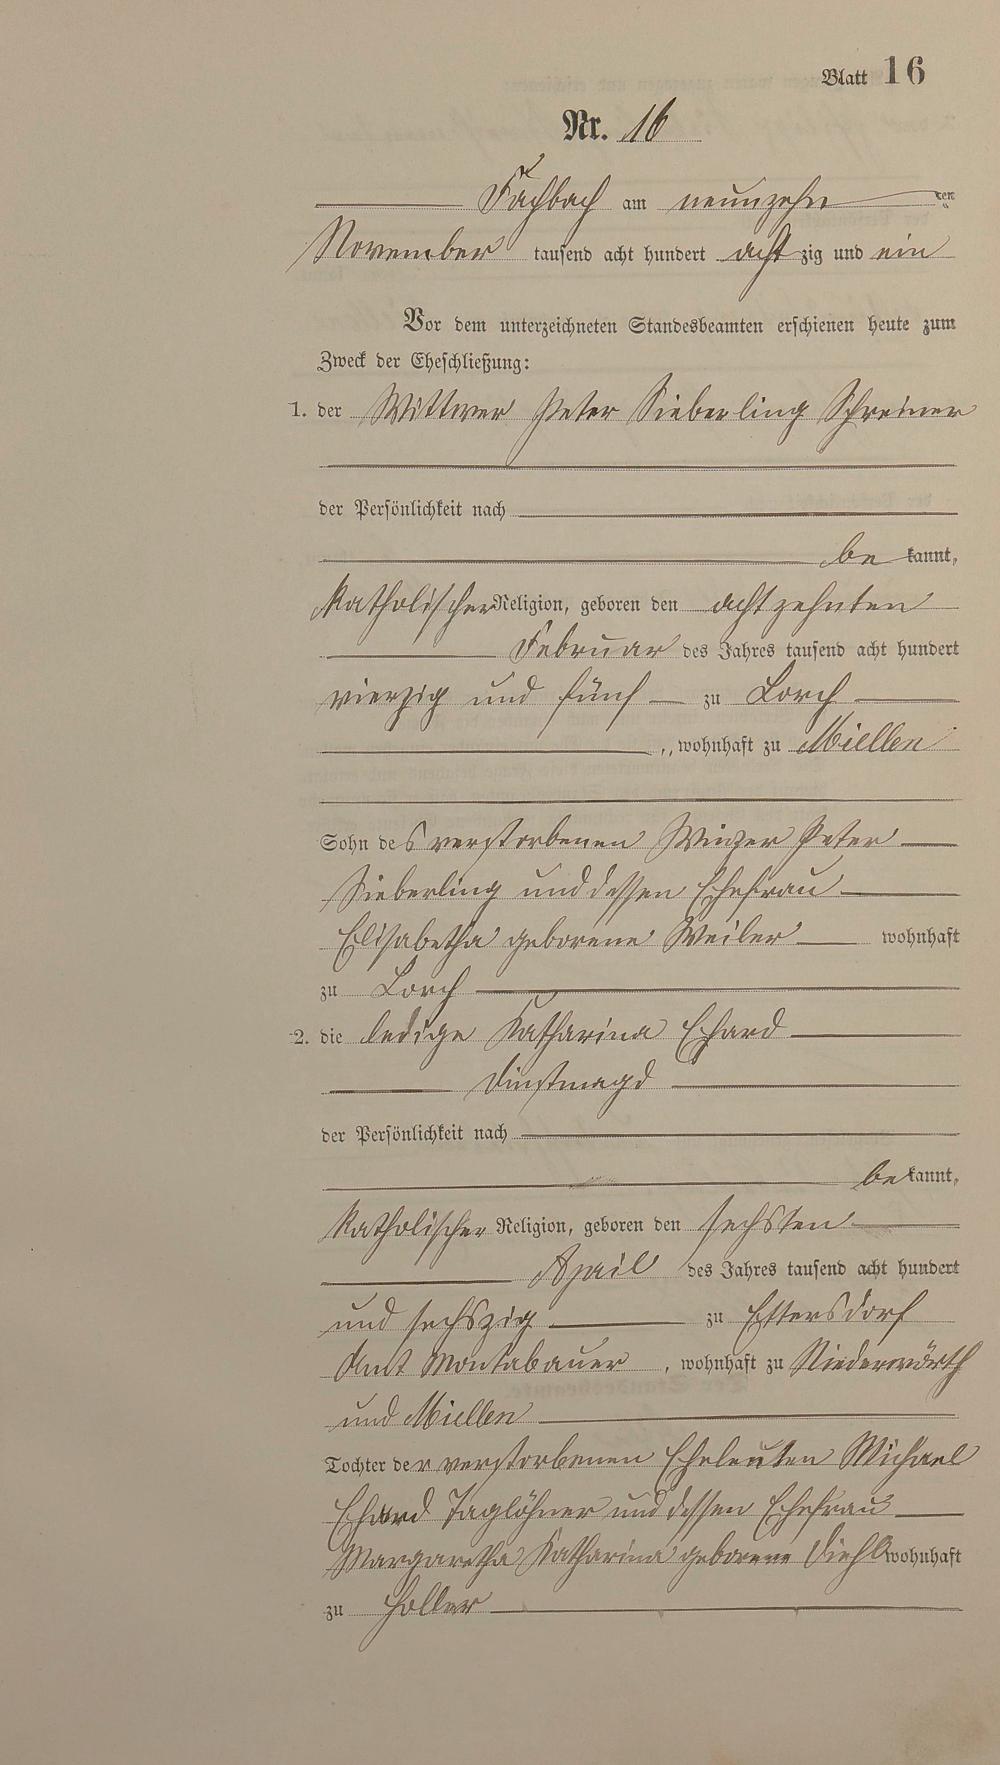 Blatt 16
Nr. 16
Fachbach am neunzehn ten
November tausend acht hundert acht zig und ein
Vor dem unterzeichneten Standesbeamten erschienen heute zum
Zweck der Eheschließung:
1. der Wittwer Peter Sieberling Schreiner
der Persönlichkeit nach
be kannt,
katholischer Religion, geboren den achtzehnten
Februar des Jahres tausend acht hundert
vierzig und fünf zu Lorch
, wohnhaft zu Miellen
Sohn des verstorbenen Winzer Peter
Sieberling und dessen Ehefrau
Elisabetha geborene Weiler wohnhaft
zu Lorch
2. die ledige Katharina Ehard
Dinstmagd
der Persönlichkeit nach
be kannt,
katholischer Religion, geboren den sechsten
April des Jahres tausend acht hundert
und sechszig zu Ettersdorf
Amt Montabauer , wohnhaft zu Niederwörth
und Miellen
Tochter der verstorbenen Eheleuten Michael
Ehard Taglöhner und dessen Ehefrau
Margaretha Katharina geborene Diehl wohnhaft
zu Holler